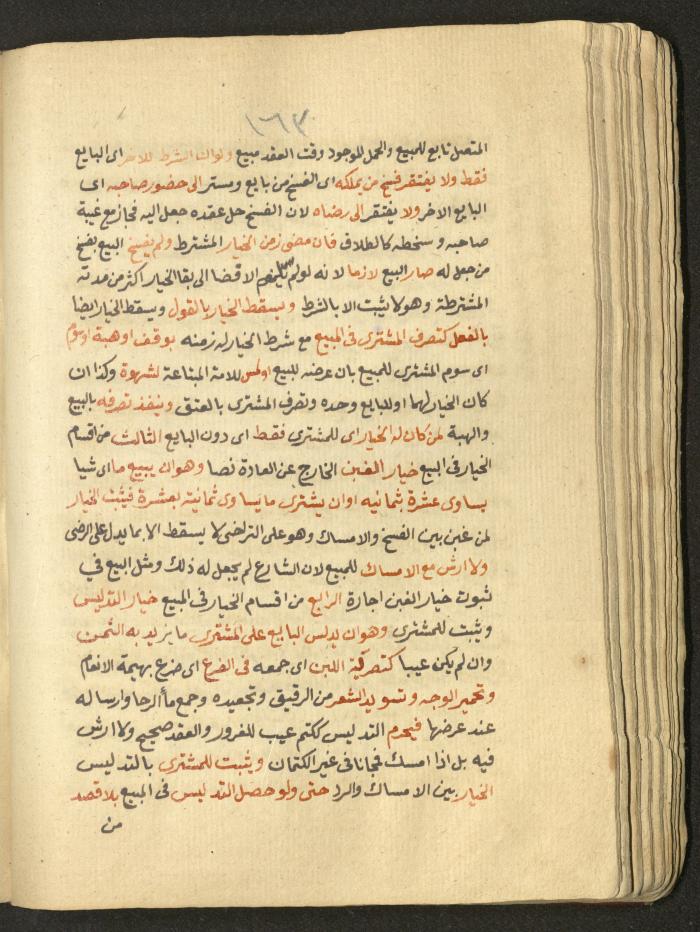 ١٦٣
المتصل تابع للمبيع والحمل الموجود وقت العقد مبيع ولو ان الشرط للاخر اى البايع
فقط ولا يفتقر فسخ من يملكه اى الفسخ من بايع ومستر الى حضور صاحبه اى
البايع الاخر ولا يفتقر الى رضاه لان الفسخ حل عقد جعل اليه فجاز مع غيبة
صاحبه وسخطه كالطلاق فان مضى زمن الخيار المشترط ولم يفسخ البيع بفسخ
من جعل له صار البيع لازما لانه لو لم يلزم الافضا الى بقا الخيار اكثر من مدته
المشترطة وهو لا يثبت الا بالشرط ويسقط الخيار بالقول ويسقط الخيار ايضا
بالفعل كتصرف المشترى فى المبيع مع شرط الخيار له زمنه بوقف او هبة او سوم
اى سوم المشترى للمبيع بان عرضه للبيع او لمس للامة المبتاعة لشهوة وكذا ان
كان الخيار لهما او للبايع وحده وتصرف المشترى بالعتق وينفذ تصرفه بالبيع
والهبة لمن كان له الخيار اى للمشترى فقط اى دون البايع الثالث من اقسام
الخيار فى البيع خيار الغبن الخارج عن العادة نصا وهو ان يبيع ما اى شيا
يساوى عشرة بثمانيه او ان يشترى ما يساوى ثمانية بعشرة فيثبت الخيار
لمن غبن بين الفسخ والامساك وهو على التراخى لا يسقط الا بما يدل على الرضى
ولا ارش مع الامساك للمبيع لان الشارع لم يجعل له ذلك ومثل البيع في
ثبوت خيار الغبن اجارة الرابع من اقسام الخيار فى المبيع خيار التدليس
ويثبت للمشترى وهو ان يدلس البايع على المشترى ما يزيد به الثمن
وان لم يكن عيبا كتصرية اللبن اى جمعه فى الضرع اى ضرع بهيمة الانعام
وتحمير الوجه وتسويد الشعر من الرقيق وتجعيده وجمع ماء الرحا وارساله
عند عرضها فيحرم التدليس ككتم عيب للغرور والعقد صحيح ولا ارش
فيه بل اذا امسك فمجانا فى غير الكتمان ويثبت للمشترى بالتدليس
الخيار بين الامساك والرد حتى ولو حصل التدليس فى المبيع بلا قصد
من